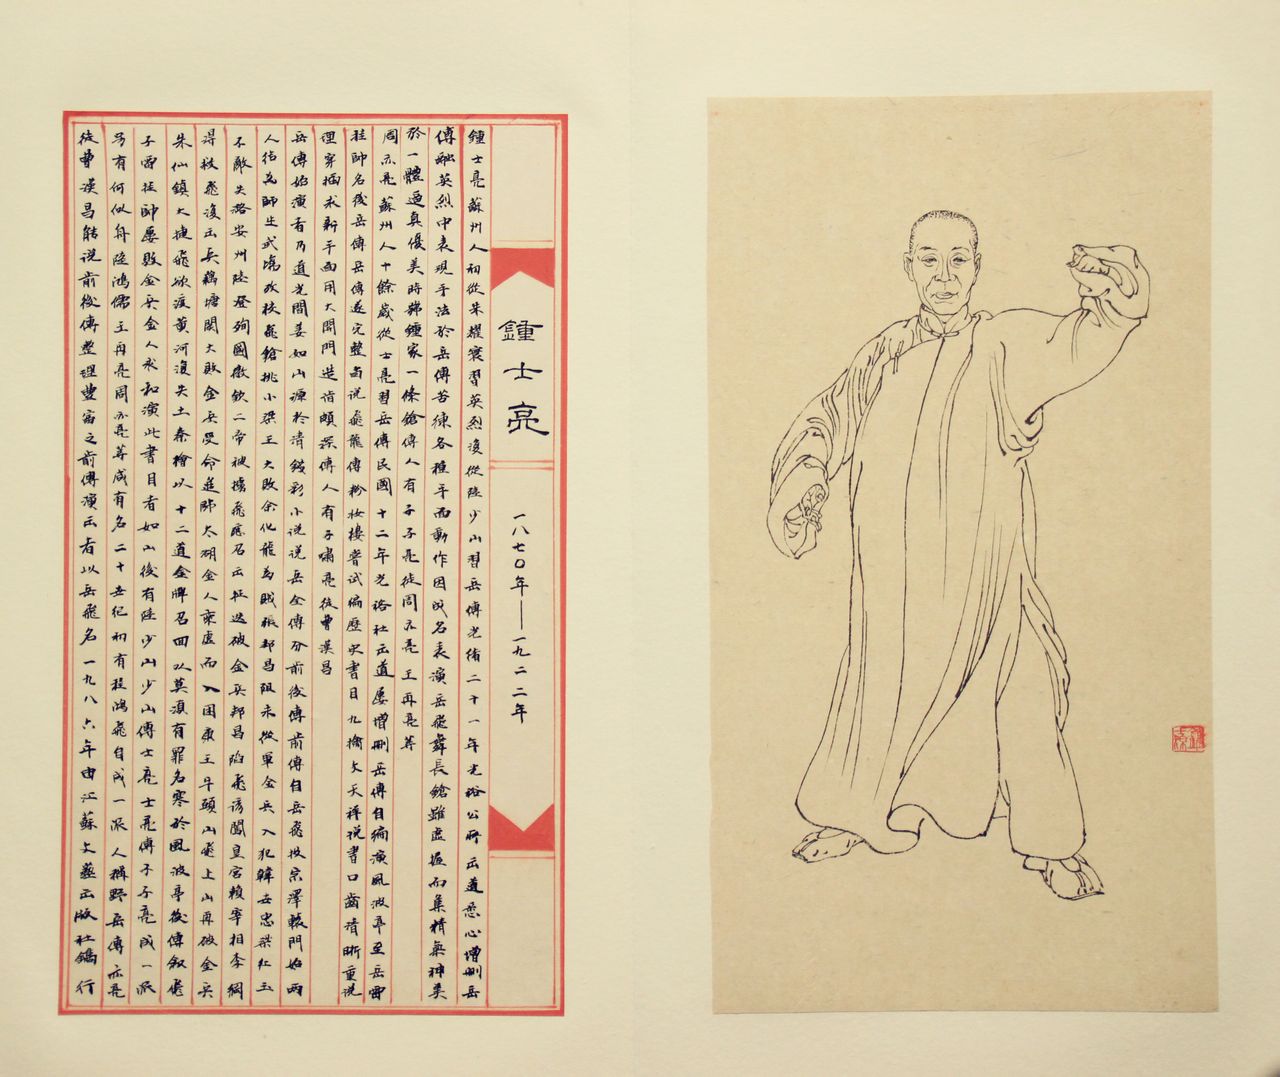 鍾士亮
一八七〇年——一九二二年
鍾士亮蘇州人初從朱耀寰習英烈後從陸少山習岳傳光緒二十一年光裕公所出道悉心增刪岳
傳融英烈中表現手法於岳傳苦練各種手面動作因成名表演岳飛舞長鎗雖虛擬而集精氣神美
於一體逼真優美時稱鍾家一條鎗傳人有子子亮徒周亦亮 王再亮等
周亦亮蘇州人十餘歲從士亮習岳傳民國十二年光裕社出道屢增刪岳傳自編演風波亭至岳雷
挂帥名後岳傳岳傳遂完整曾說飛龍傳粉妝樓嘗試編歷史書目九擒文天祥說書口齒清晰重說
理穿插求新手面用大開門造詣頗深傳人有子嘯亮徒曹漢昌
岳傳始演者乃道光間姜如山源於清錢彩小說說岳全傳分前後傳前傳自岳飛投宗澤轅門始兩
人結為師生武場放扶飛鎗挑小梁王大敗余化龍為賊張邦昌阻未從軍金兵入犯韓世忠梁紅玉
不敵失潞安州陸登殉國徽欽二帝被擄飛應召出征迭破金兵邦昌陷飛謗闖皇宮賴宰相李綱
得救飛復出兵藕塘關大敗金兵受命進師太湖金人乘虛而入困康王牛頭山飛上山再破金兵
朱仙鎮大捷飛欲渡黃河復失土秦檜以十二道金牌召回以莫須有罪名害於風波亭後傳叙飛
子雷挂帥屢敗金兵金人求和演此書目者如山後有陸少山少山傳士亮士亮傳子子亮成一派
另有何似舟陸鴻儒王再亮周亦亮等咸有名二十世紀初有程鴻飛自成一派人稱野岳傳亦亮
徒曹漢昌能說前後傳整理豐富之前傳演出者以岳飛名一九八六年由江蘇文藝出版社鐫行